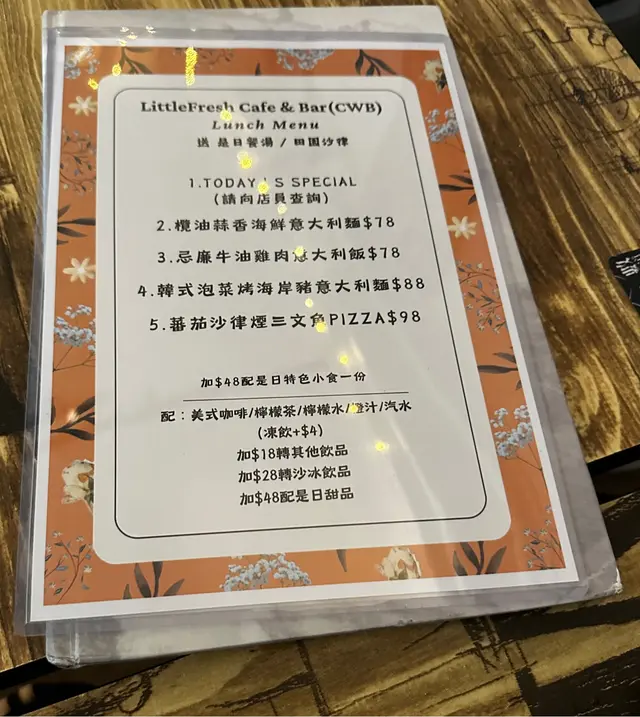 LittleFresh Cafe & Bar(CWB)
Lunch Menu
送 是日餐湯 / 田園沙律
1.TODAY'S SPECIAL
(請向店員查詢)
2.欖油蒜香海鮮意大利麵$78
3.忌廉牛油雞肉意大利飯$78
4.韓式泡菜烤海岸豬意大利麵$88
5.蕃茄沙律煙三文魚PIZZA$98
加$48配是日特色小食一份
配：美式咖啡/檸檬茶/檸檬水/橙汁/汽水
(凍飲+$4)
加$18轉其他飲品
加$28轉沙冰飲品
加$48配是日甜品